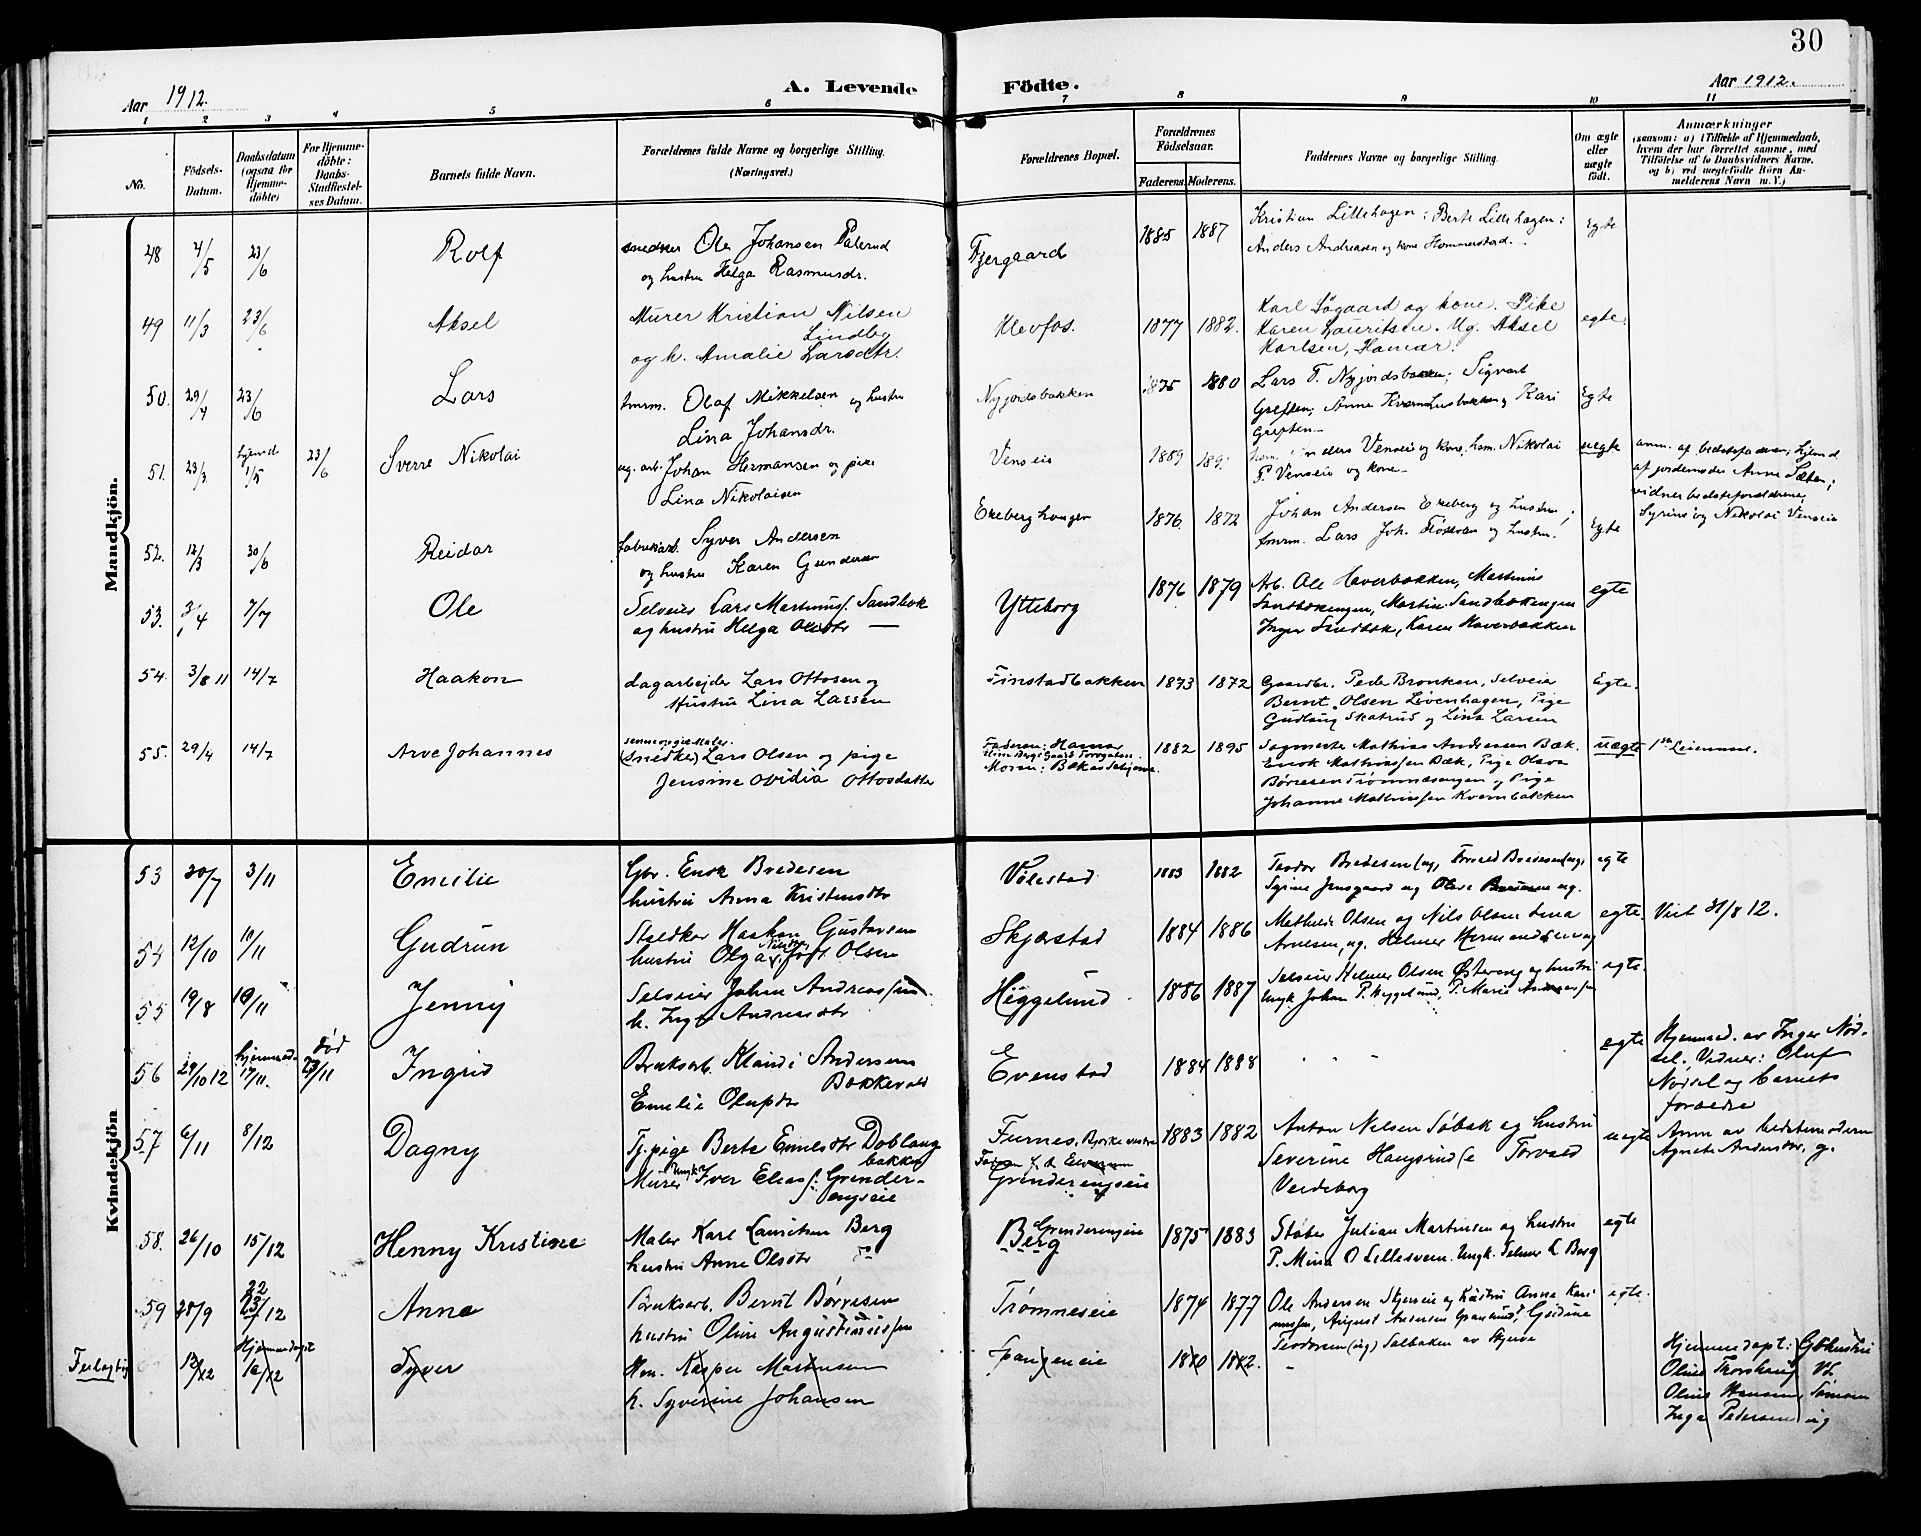 30
Aar 1912.
A. Levende
Födte.
Aar 1912.
1 2 3 4 5 6 7 8 9 10 11
No.
Födsels-
Datum.
Daabsdatum
(ogsaa for
Hjemme-
döbte)
For Hjemme-
döbte:
Daabs-
Stadfæstel-
ses Datum.
Barnets fulde Navn.
Forældrenes fulde Navne og borgerlige Stilling.
(Næringsvei.)
Forældrenes Bopæl.
Forældrenes
Födselsaar.
Faderens. Moderens.
Faddernes Navne og borgerlige Stilling.
Om ægte
eller
uægte
födt.
Anmærkninger
(saasom: a) i Tilfælde af Hjemmedaab,
hvem der har forrettet samme, med
Tilföielse af to Daabsvidners Navne.
og b) ved uægtefödte Börn An-
melderens Navn m. V.)
Mandkjön.
48 4/5 23/6 Rolf
snedker Ole Johansen Palerud
og hustru Helga Rasmusdr.
Fjergaard 1885 1887
Kristian Lillehagen; Berte Lillehagen;
Anders Andreasen og kone Hommerstad.
Egte
49 11/3 23/6 Aksel
Murer Kristian Nilsen
Lindby
og h. Amalie Larsdtr.
Klevfos. 1877 1882.
Karl Søgaard og kone. Pike
Karen Lauritsen. Ug. Aksel
Karlsen, Hamar.
egte.
50. 29/4 23/6 Lars
tmrm. Olaf Mikkelsen og hustru
Lina Johansdr.
Nyjordsbakken 1875 1880
Lars T. Nyjordsbakken; Sigvart
Greften; Anne Kvernhusbakken og Kari
Greften
Egte
51. 23/3 hjemd 1/5 23/6 Sverre Nikolai
ug. arb. Johan Hermansen og pike
Lina Nikolaisen
Venseie 1889 189
Anders Venseie og kone, hom. Nikolai
P. Venseie og kone
uegte
anm. af bedstefaderen; hjemd.
af jordemoder Anne Sæter;
vidner bedsteforældrene,
Syrine og Nikolai Venseie
52. 12/3 30/6 Reidar
fabrikarb. Syver Andersen
og hustru Karen Gundersen
Ekeberghaugen 1876. 1872
Johan Andersen Ekeberg og hustru;
tmrm. Lars Joh. og hustru.
Egte
53. 3/4 7/7 Ole
Selveier Lars Martinus. Sandbæk
og hustru Helga Olesdtr —
Ytteborg 1876 1879
Arb. Ole Haverbakken, Martinus
Sandbækengen, Martin Sandbækengen
Inger Sandbæk, Karen Haverbakken
egte
54. 3/8 11 14/7 Haakon
dagarbejder Lars Ottosen og
Hustru Lina Larsen
Finstadbakken 1873 1872
Gaardbr. Peder Bronken, Selveier
Bernt Olsen Løvenhagen, Pige
Gudlaug Skatrud og Lina Larsen
Egte.
55. 29/4 14/7 Arve Johannes
(snedker) Lars Olsen og pige
Jensine Ovidia Ottosdatter
Faderen: Hamar
Moren: Bækeseie
1882 1895
Sagmester Mathias Andreassen Bæk.
Enok Mathiassen Bæk, Pige Olava
Børresen Trømnæsengen og Pige
Johanne Mathiassen Kvernbakken
uægte 1ste Leiermaal.
Kvindekjön
53 30/7 3/11 Emilie
Gbr. Enok Bredesen
hustru Anna Kristiansdtr
Volestad 1883 1882
Teodor Bredesen (ug, Torvald Bredesen (ug,
Syrine Jensgaard ug Oline ug.
egte
54 12/10 10/11 Gudrun
Staldkar Haakon Gustavsen
hustru Olga Nielsen f. Olsen
Skjerstad 1884 1886
Mathias Olsen og Nils Olsen Lina
Arnesen, ug. Helmer Hermandsen ug
egte. Viet 31/8 12.
55 19/8 10/11 Jenny
Selveier Johan Andreassen
h. Inga Andreasdtr
Heggelund 1886 1887
Selveier Helmer Olsen Østereng og hustru
Ungk Johan P. Heggelund, P. Marie Andreassen
egte.
56 29/10 12 hjemmed. 17/11. død 23/11 Ingrid
Bruksarb. Klaudi Andersen
Bakkevold
Emilie Olufsdtr
Evenstad 1884 1888
egte
Hjemmed. av Inger Nød-
sel. Vidner: Oluf
Nødsel og barnets
forældre
57 6/11 8/12 Dagny
Tj. pige Berte Emilsdtr Doblaug
bakken
Murer Ungk. Iver Eliass. Grinder-
engseie
Furnes. Bjerke vestre
Grinderengseie
1883 1882
Anton Nilsen Søbak og hustru
Severine Haugsrud (e Torvald
Veideborg
uegte
Anm av bedstemoderen
Agnete Andersdtr, g.
58. 26/10 15/12 Henny Kristine
Maler Karl Lauritsen Berg
hustru Anne Olsdtr do
Grinderengseie
Berg 1875 1883
Støber Julian Martinsen og hustru
P. Mina O Lillesveen. Ungk. Selmer L Berg
egte
59 28/9 22 23/12 Anna
Bruksarb. Bernt Børresen
hustru Oline Augustinussen
Trømneseie 1874 1877
Ole Andersen Skjerseie og hustru Anna Kari-
nussen, August Andersen Granlund, Gudine
Teodorsen (ug) Salbakken av Skjerse
egte.
Feilagtig 12/12 Hjemmedøpt 12/12 Syver
Hm. Kasper Martinsen
h. Syverine Johansen
Spangeneie 1880 1882.
Hjemmedøpt:
Oline Thorshaug
Oline Hansen,
Inga Pedersen ug